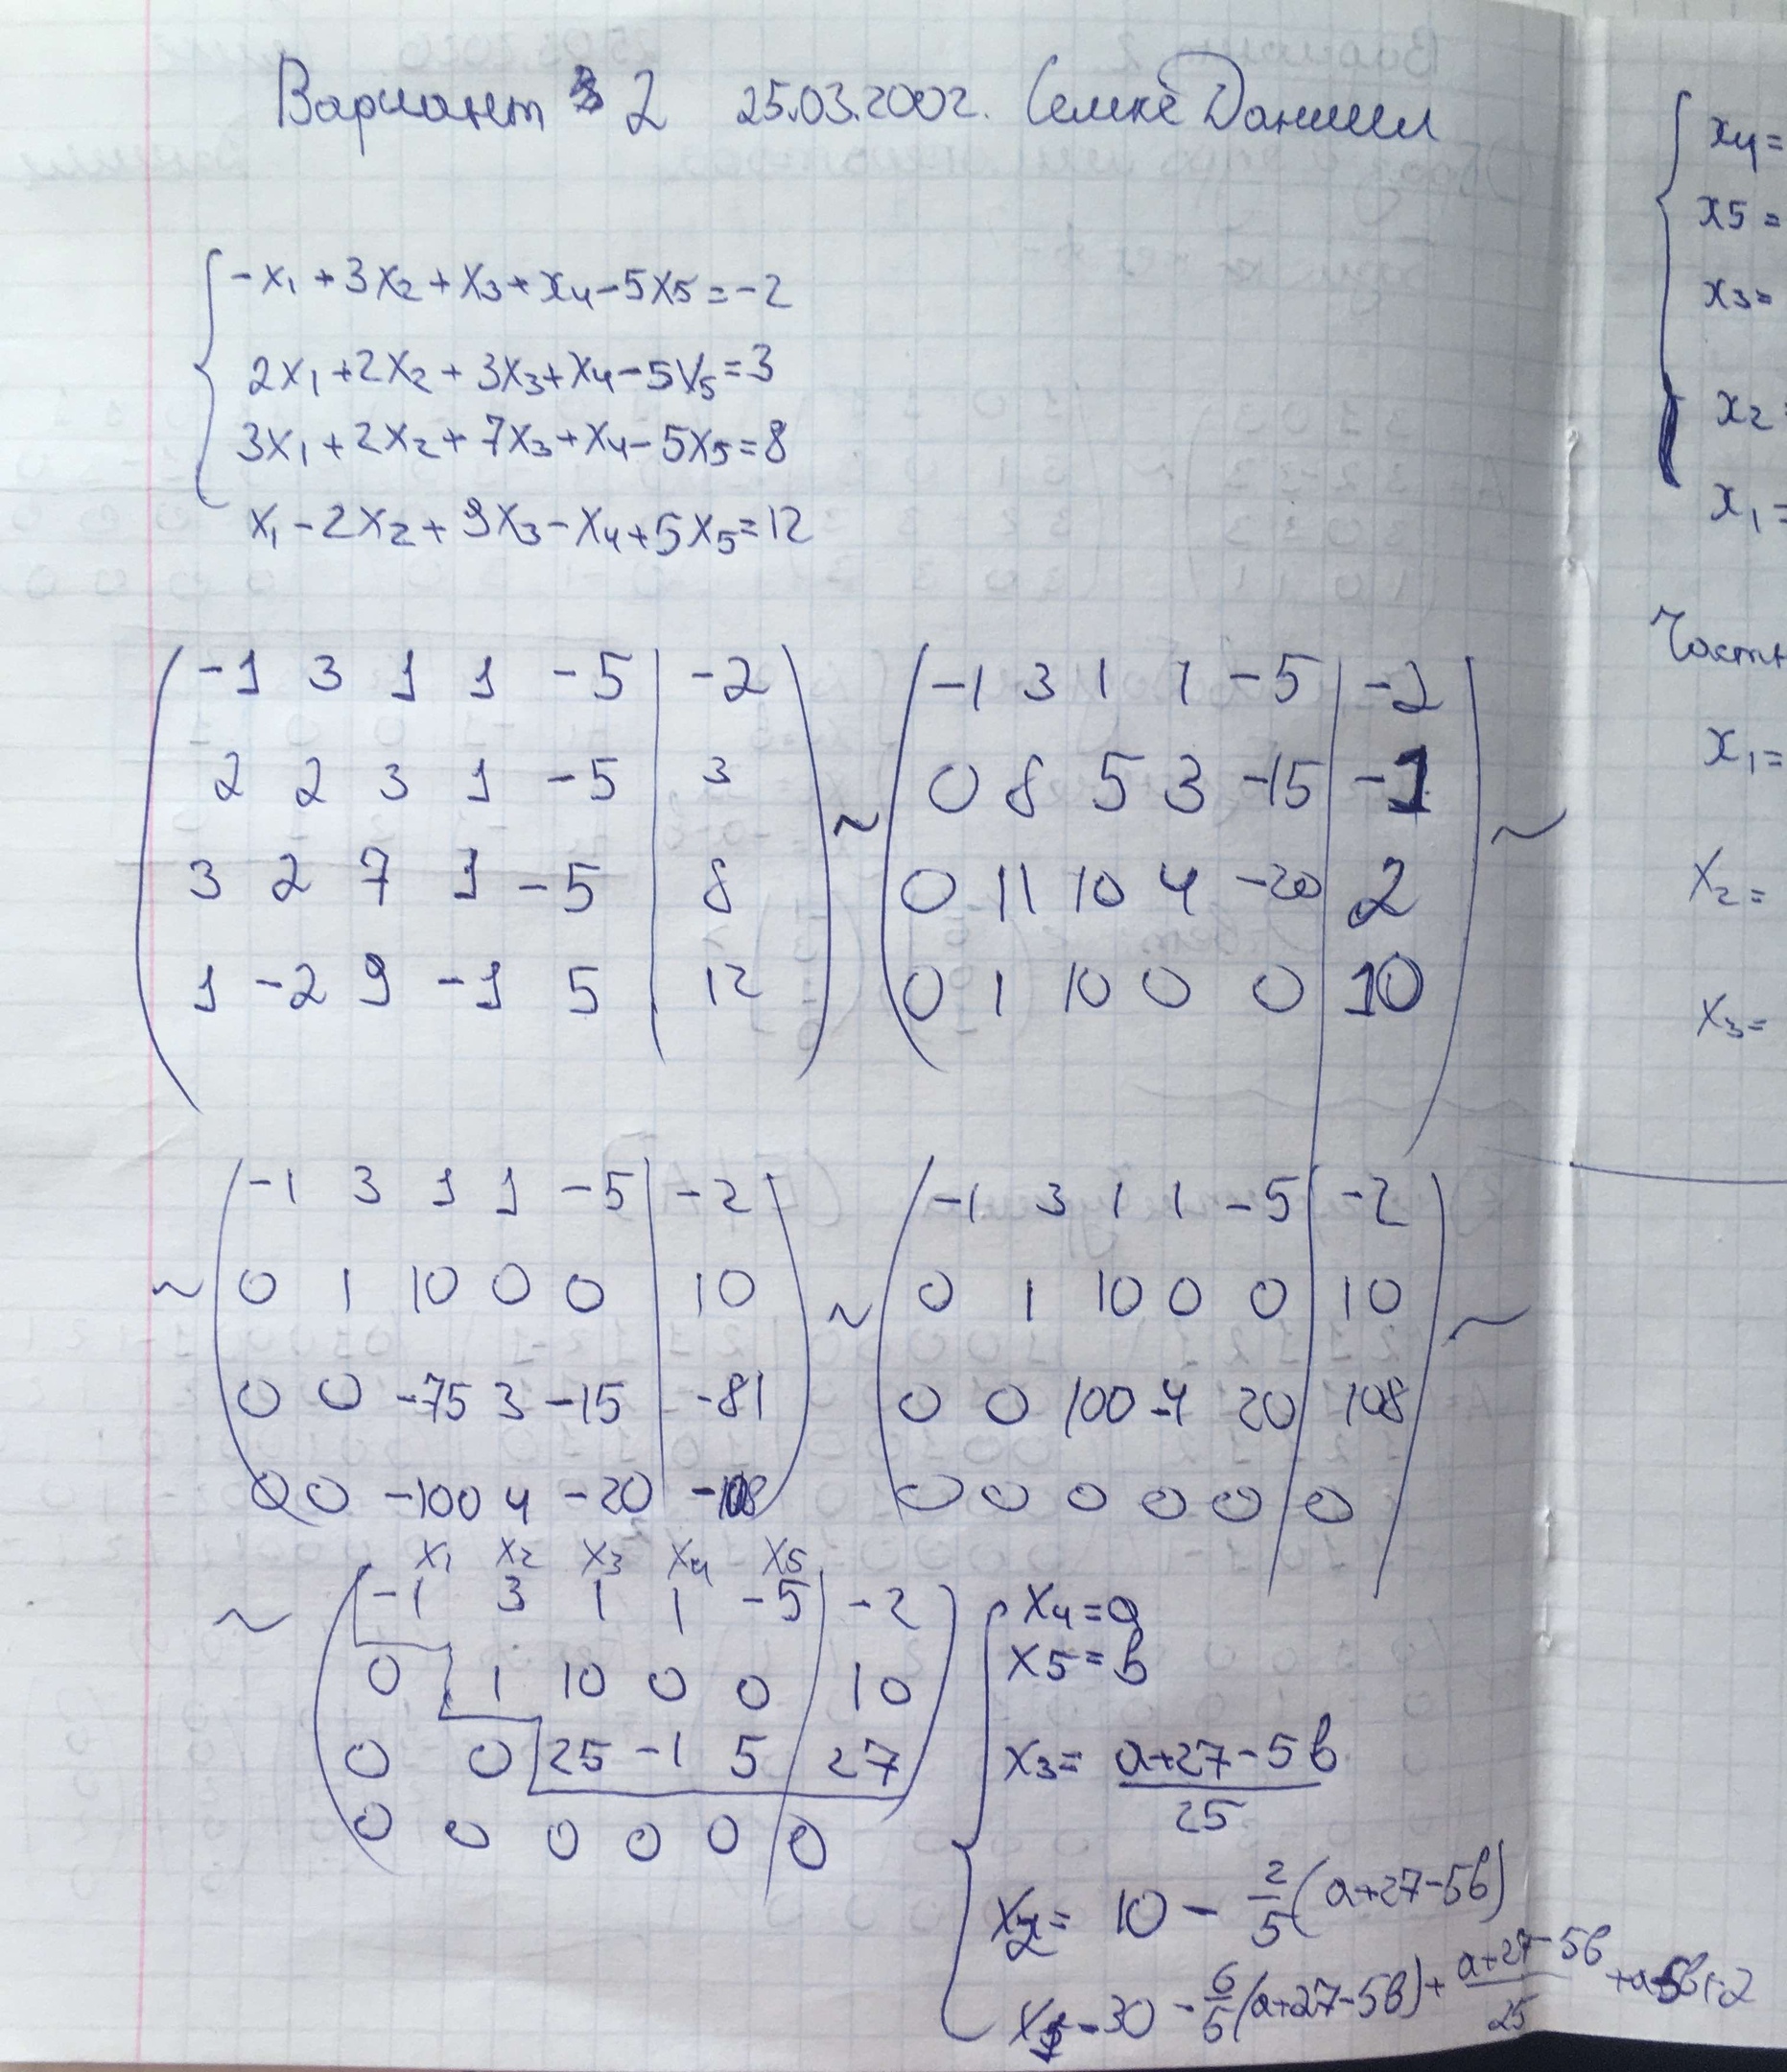 Вариант 2 25.03.2002. Семке Даниил
-x₁ + 3x₂ + x₃ + x₄ - 5x₅ = -2
2x₁ + 2x₂ + 3x₃ + x₄ - 5x₅ = 3
3x₁ + 2x₂ + 7x₃ + x₄ - 5x₅ = 8
x₁ - 2x₂ + 9x₃ - x₄ + 5x₅ = 12
-1 3 1 1 -5 | -2
2 2 3 1 -5 | 3
3 2 7 1 -5 | 8
1 -2 9 -1 5 | 12
~
-1 3 1 1 -5 | -2
0 8 5 3 -15 | -1
0 11 10 4 -20 | 2
0 1 10 0 0 | 10
~
~
-1 3 1 1 -5 | -2
0 1 10 0 0 | 10
0 0 -75 3 -15 | -81
0 0 -100 4 -20 | -108
~
-1 3 1 1 -5 | -2
0 1 10 0 0 | 10
0 0 100 -4 20 | 108
0 0 0 0 0 | 0
~
~
x₁ x₂ x₃ x₄ x₅
-1 3 1 1 -5 | -2
0 1 10 0 0 | 10
0 0 25 -1 5 | 27
0 0 0 0 0 | 0
x₄ = a
x₅ = b
x₃ = (a+27-5b)/25
x₂ = 10 - 2/5(a+27-5b)
x₁ = 30 - 6/5(a+27-5b) + (a+27-5b)/25 + a-5b+2
x₄ =
x₅ =
x₃ =
x₂
x₁ =
x₁ =
x₂ =
x₃ =